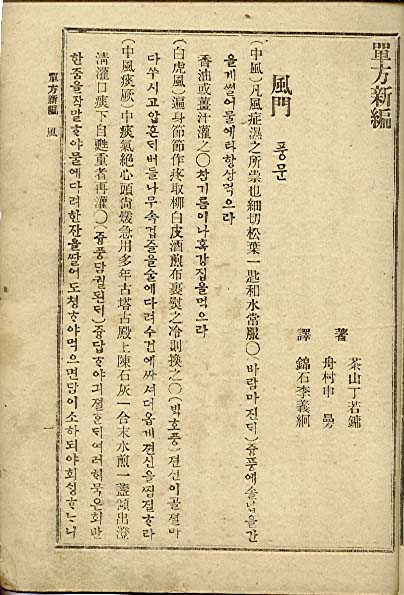 單方新編
茶山丁若鏞
著
舟村申 曼
譯 錦石李義絅
風門 풍문
(中風)凡風症濕之所祟也細切松葉一匙和水常服〇(바람마진데)즁풍에솔닙을간
을게썰어물에타항상먹으라
香油或薑汁灌之〇참기름이나혹강집을먹으라
(白虎風)遍身節節作疼取柳白皮酒煎布裹熨之冷則換之〇(빅호풍)젼신이골졀마
다쑤시고압흔데버들나무속겁즐을술에다려수건에싸셔더웁게젼신을찜질ᄒᆞ라
(中風痰厥)中痰氣絶心頭尙煖急用多年古塔古殿上陳石灰一合末水煎一盞傾出澄
淸灌口痰下自甦重者再灌〇(즁풍담궐된데)즁담ᄒᆞ야긔졀ᄒᆞᆫ데여러ᄒᆡ묵은회
한줌을작말ᄒᆞ야물에다려한잔을ᄯᅡᆯ어도청ᄒᆞ야먹으면담이소하되야회ᄉᆡᆼᄒᆞᄂᆞ니
單方新編 風 一